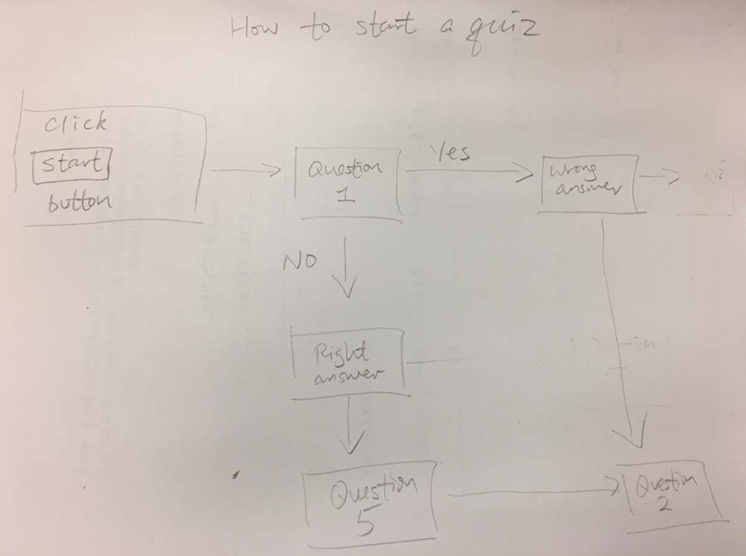 How to start a quiz
Click
Start
button
Question
1
Yes
Wrong
answer
NO
Right
answer
Question
5
Question
2